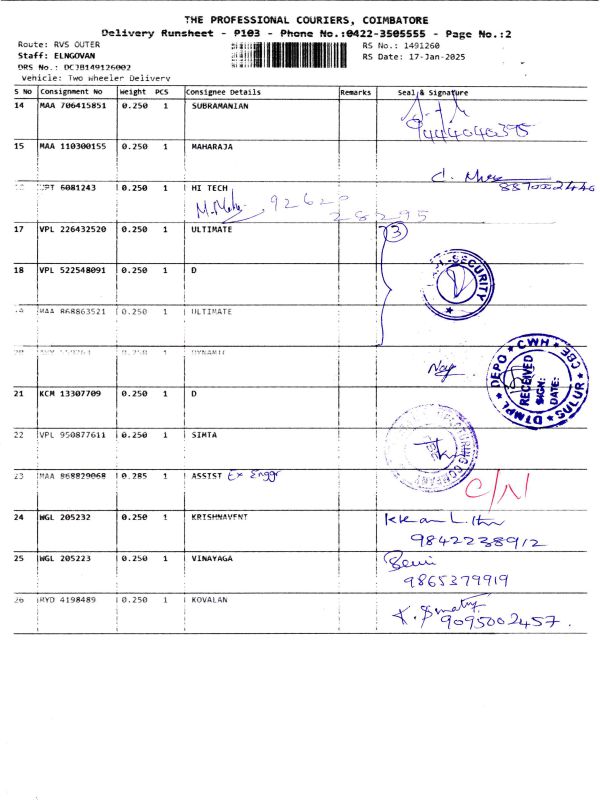 THE PROFESSIONAL COURIERS, COIMBATORE
Delivery Runsheet - P103 - Phone No.:0422-3505555 - Page No.:2
Route: RVS OUTER
RS No.: 1491260
Staff: ELNGOVAN
RS Date: 17-Jan-2025
DRS No.: DCJB149126002
Vehicle: Two Wheeler Delivery
S No Consignment No Weight PCS Consignee Details Remarks Seal & Signature
14 MAA 706415851 0.250 1 SUBRAMANIAN
9444040375
15 MAA 110300155 0.250 1 MAHARAJA
8870002446
6081243 0.250 1 HI TECH
92620
28295
17 VPL 226432520 0.250 1 ULTIMATE
3
18 VPL 522548091 0.250 1 D
SECURITY
MAA 868863521 0.250 1 ULTIMATE
DYNAMIC
DTMPL DEPO CWH CBE SULUR
RECEIVED
SIGN:
DATE:
21 KCM 13307709 0.250 1 D
22 VPL 950877611 0.250 1 SIMTA
COMPANY
23 MAA 868829068 0.285 1 ASSIST Ex Enggr
C/N
24 WGL 205232 0.250 1 KRISHNAVENT
9842238912
25 WGL 205223 0.250 1 VINAYAGA
9865379919
26 RYD 4198489 0.250 1 KOVALAN
9095002457